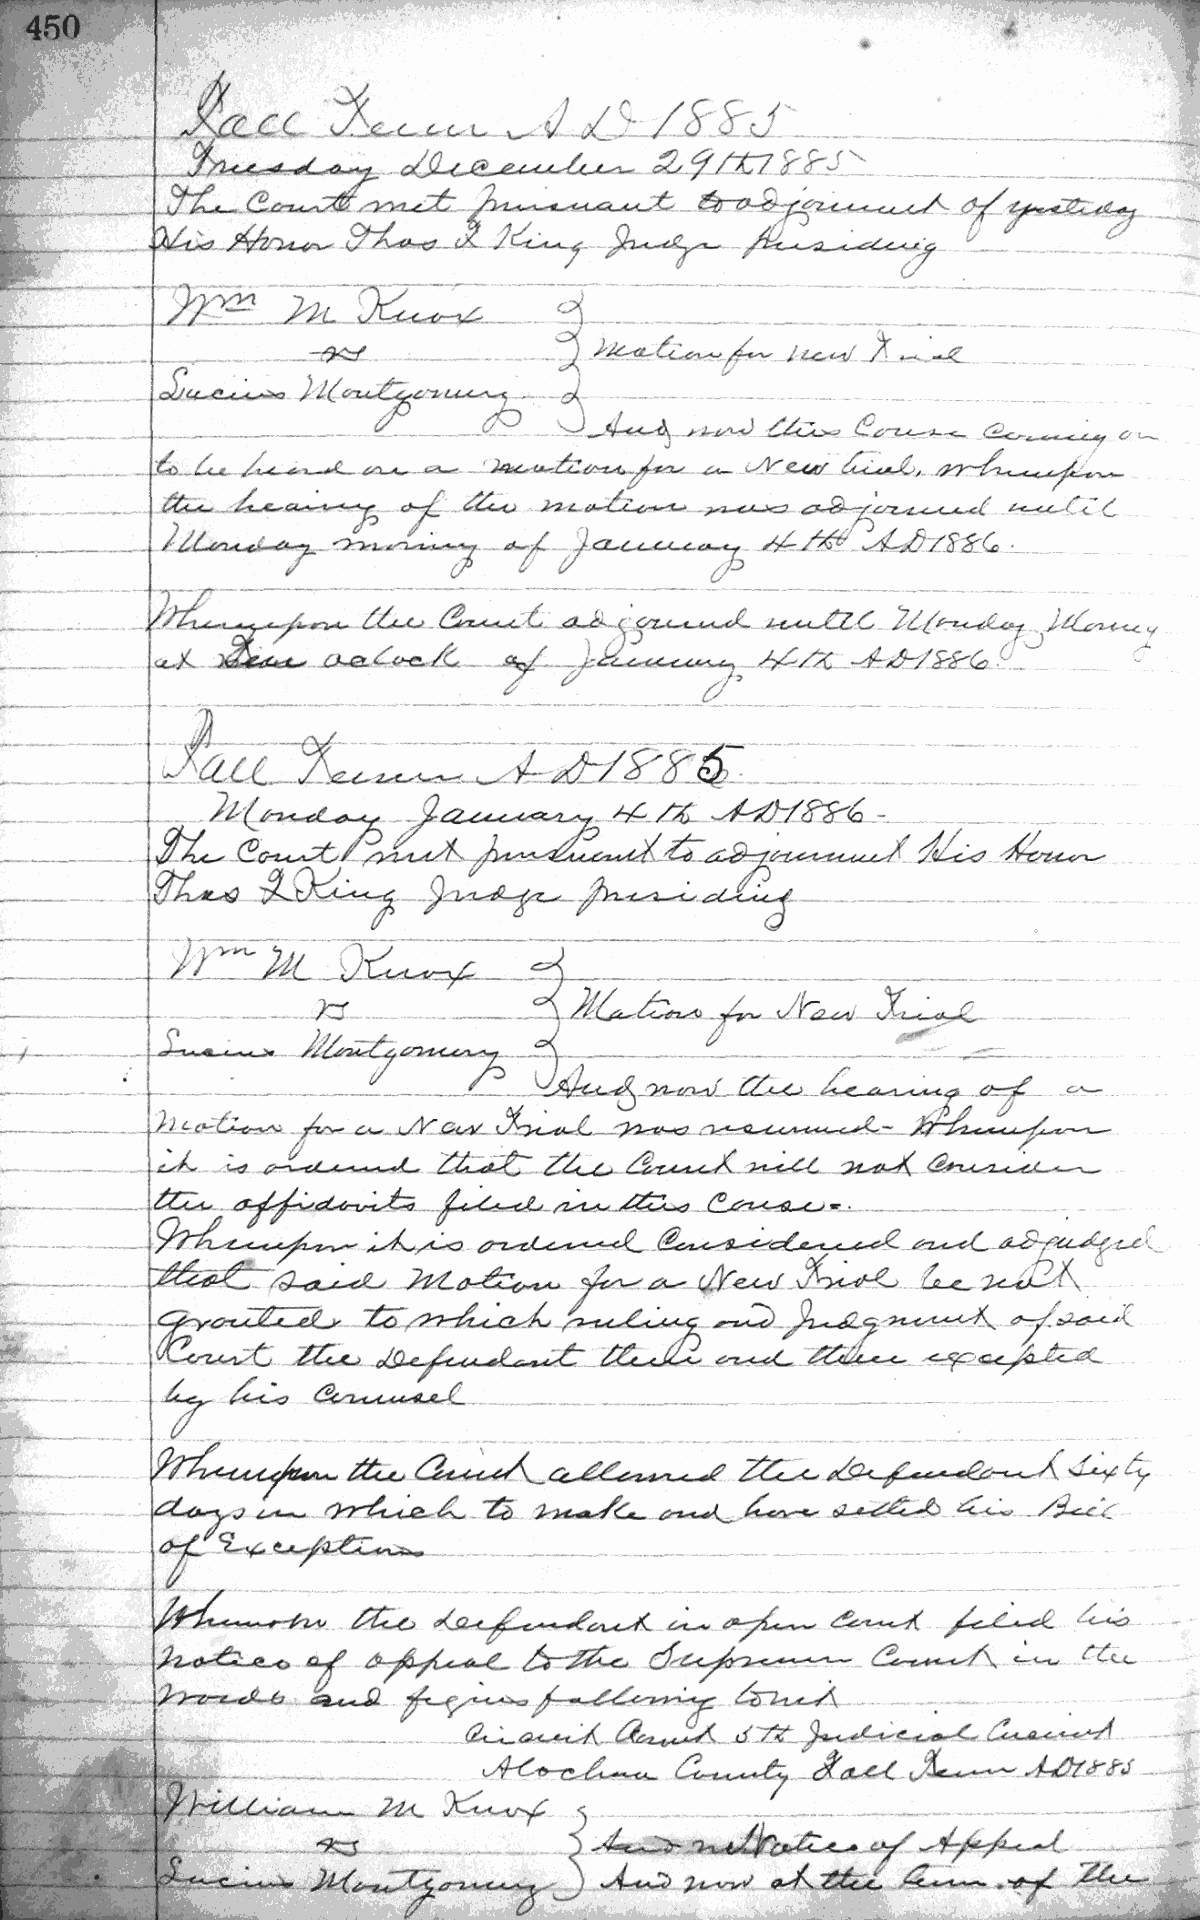 450
Fall Term A D 1885
Tuesday December 29th 1885
The Court met pursuant to adjournment of yesterday
His Honor Thos F King Judge Presiding
Wm M Knox
vs
Motion for new Trial
Lucius Montgomery
And now this Cause coming on
to be heard on a motion for a New trial. Whereupon
the hearing of the motion was adjourned until
Monday morning of January 4th AD 1886.
Whereupon the Court adjourned until Monday Morning
at oclock of January 4th AD 1886.
Fall Term A D 1885
Monday January 4th AD 1886-
The Court met pursuant to adjournment His Honor
Thos F King Judge presiding
Wm M Knox
vs
Motion for New Trial
Lucius Montgomery
And now the hearing of a
motion for a New Trial was resumed- Whereupon
it is ordered that the Court will not consider
the affidavits filed in this cause-.
Whereupon it is ordered considered and adjudged
that said Motion for a New Trial be not
granted to which ruling and Judgment of said
Court the Defendant there and then excepted
by his counsel
Whereupon the Court allowed the Defendant sixty
days in which to make and have setled his Bill
of Exceptions
Whereupon the Defendant in open court filed his
notice of appeal to the Supreme Court in the
words and figures following towit
Circuit Court 5th Judicial Circuit
Alachua County Fall Term AD 1885
William M Knox
vs
Notice of Appeal
Lucius Montgomery
And now at the term of the